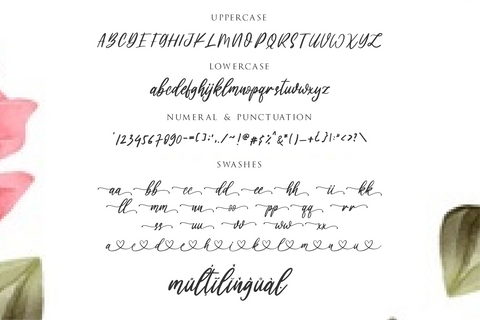 UPPERCASE
ABCDEFGHIJKLMNOPQRSTUVWXYZ
LOWERCASE
abcdefghijklmnopqrstuvwxyz
NUMERAL & PUNCTUATION
'1234567890-=[];',./~!@#$%^&*()_+{}|:"<>?\
SWASHES
aa bb cc dd ee hh ii kk
ll mm nn oo pp qq rr
ss uu vv ww xx
a c d e h i k l m u u
multilingual